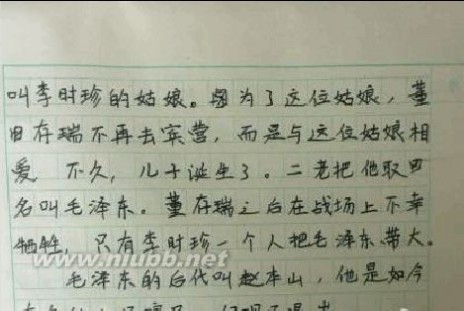 叫李时珍的姑娘。因为了这位姑娘，董
存瑞不再去宾营，而是与这位姑娘相
爱 不久，儿子诞生了。二老把他取
名叫毛泽东。董存瑞之后在战场上不幸
牺牲，只有李时珍一个人把毛泽东带大。
毛泽东的后代叫赵本山，他是如今
niubb.net